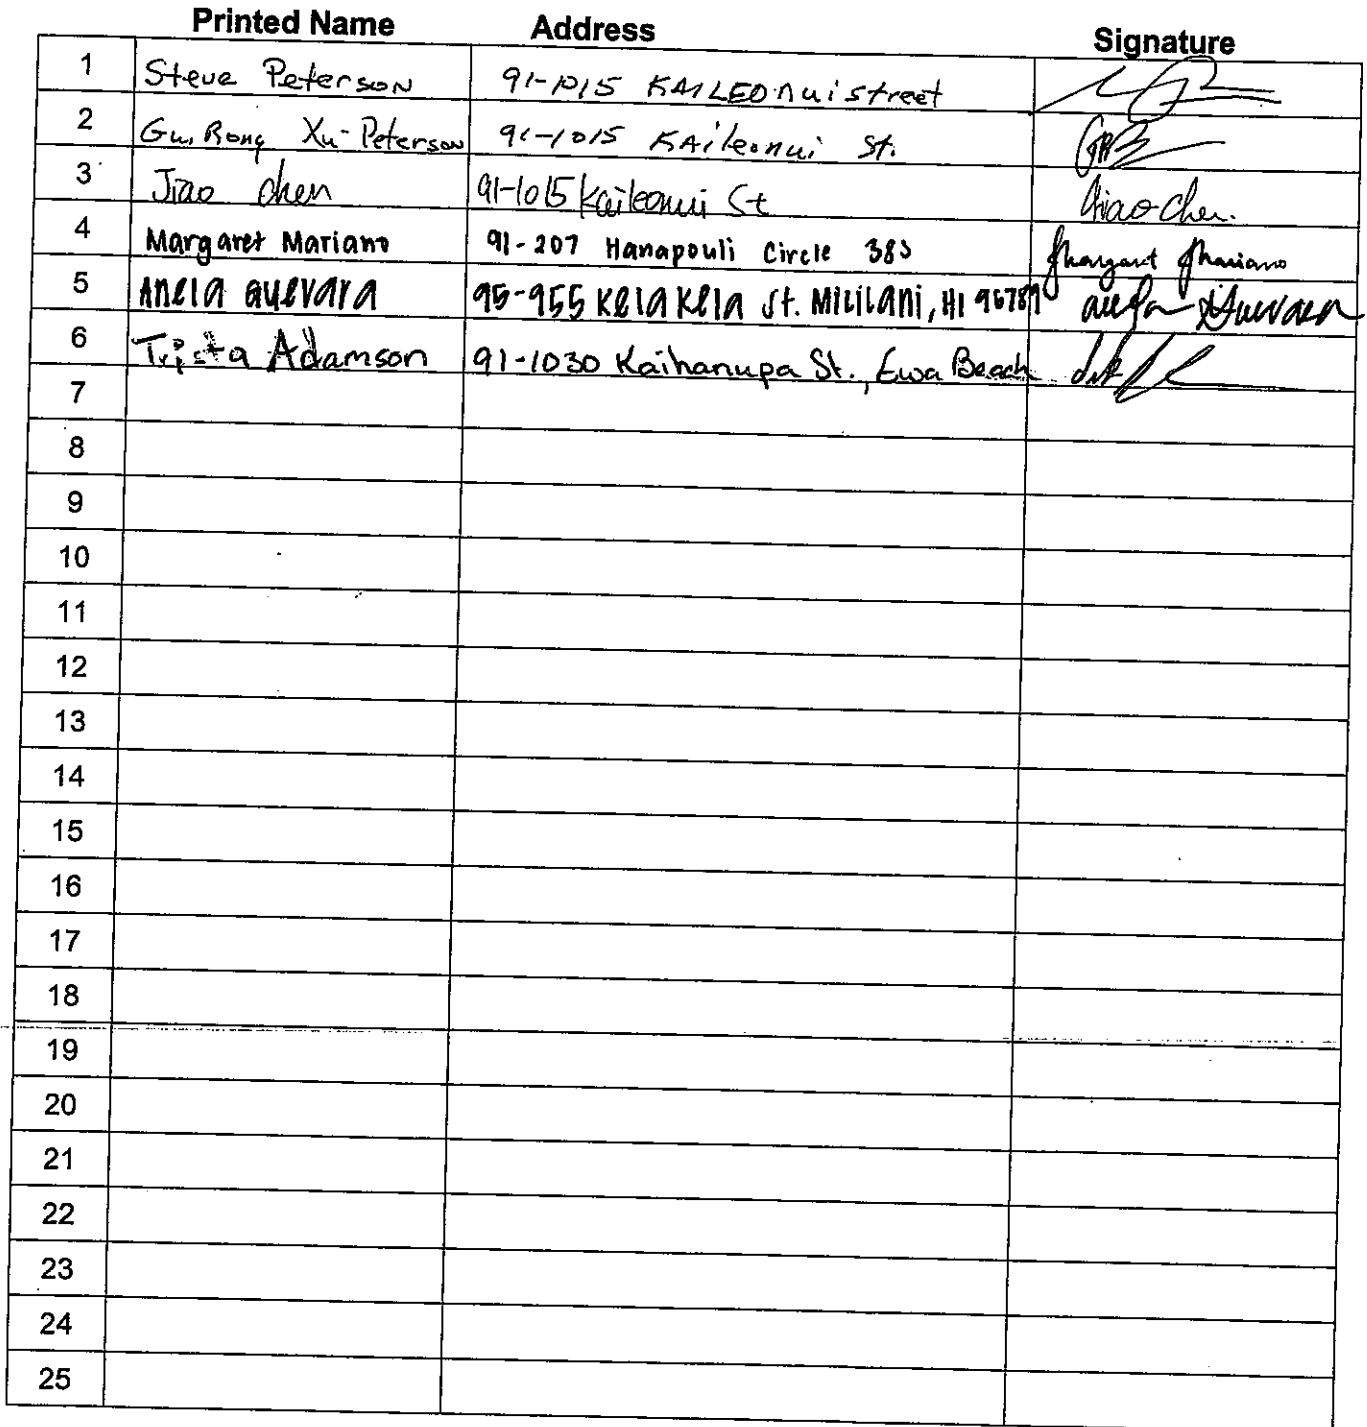 Printed Name Address Signature
1 Steve Peterson 91-1015 KAILEONUi street
2 Gui Rong Xu-Peterson 91-1015 KAileonui St.
3 Jiao chen 91-1015 Kaileonui St Jiao Chen.
4 Margaret Mariano 91-207 Hanapouli Circle 38S Margaret Mariano
5 Anela Guevara 95-955 Kelakela St. Mililani, HI 96789 Anela Guevara
6 Trista Adamson 91-1030 Kaihanupa St., Ewa Beach
7
8
9
10
11
12
13
14
15
16
17
18
19
20
21
22
23
24
25